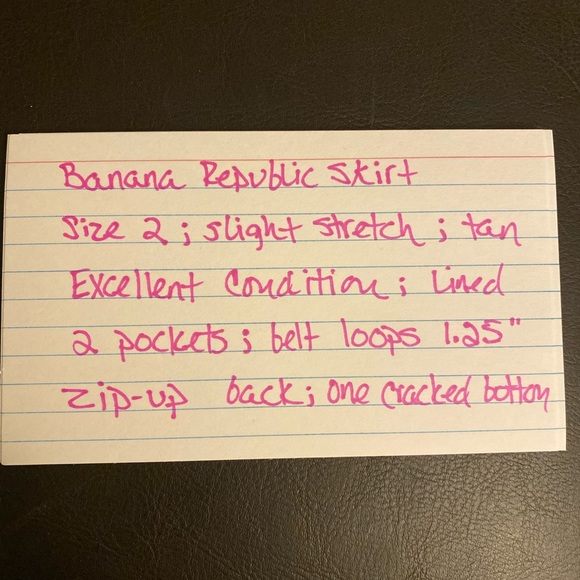 Banana Republic Skirt
Size 2 ; slight stretch ; tan
Excellent Condition ; Lined
2 pockets ; belt loops 1.25"
Zip-up back ; one cracked botton